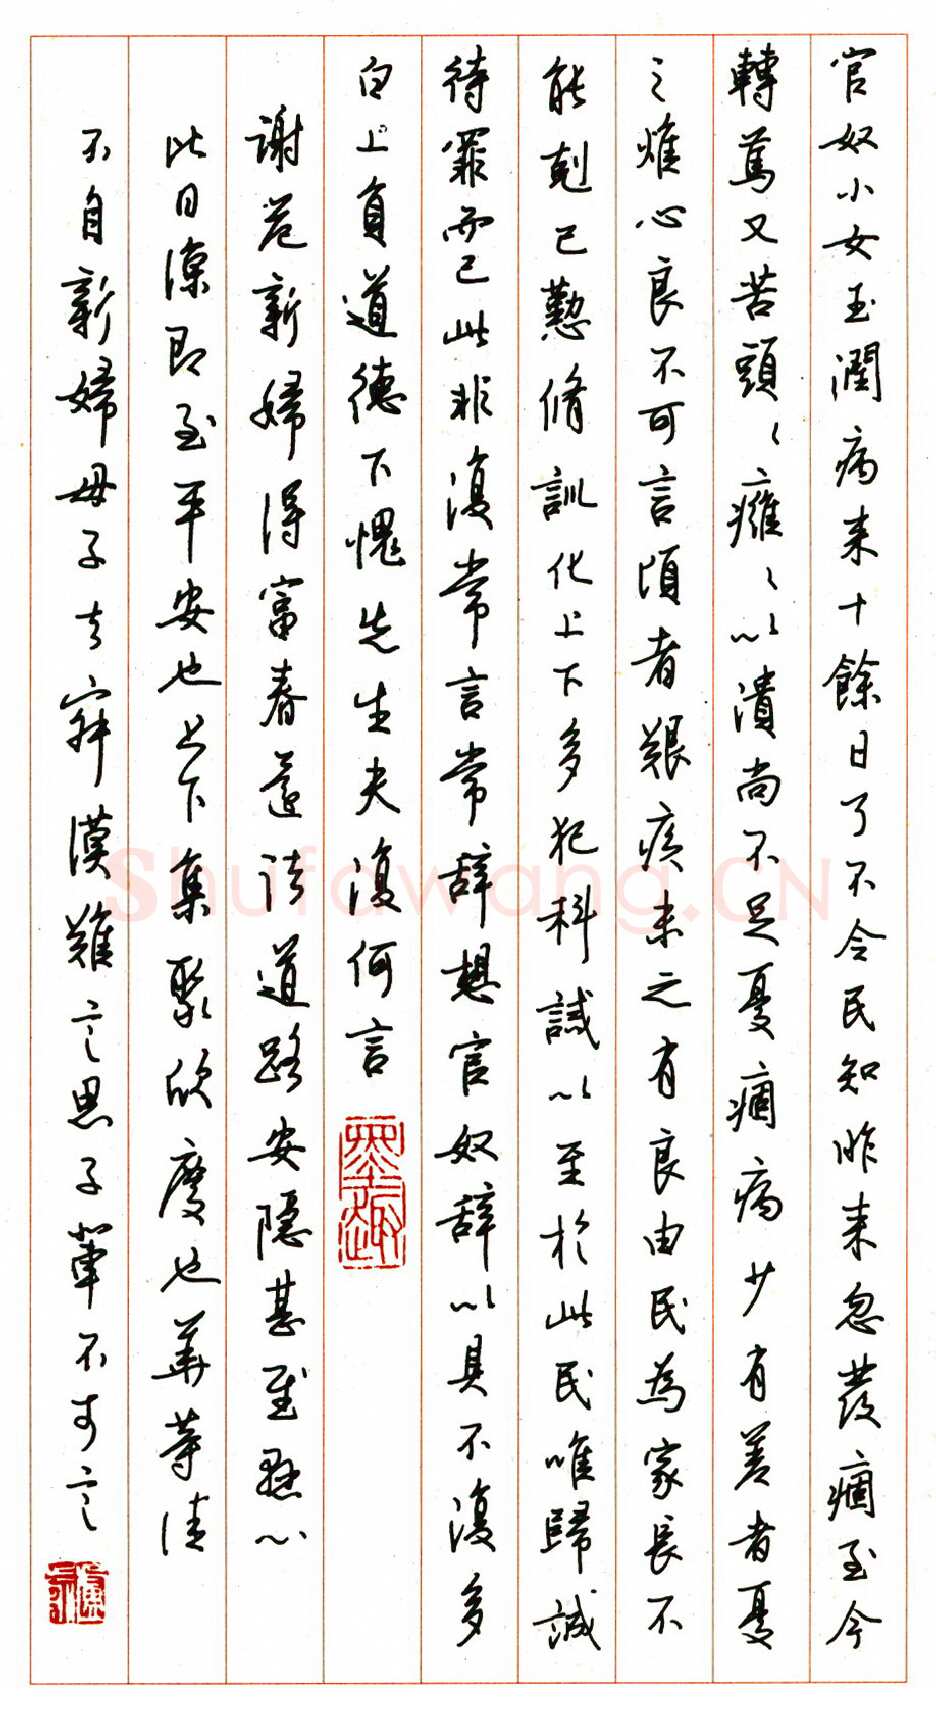 官奴小女玉潤病来十餘日了不令民知昨来忽發痼至今
轉篤又苦頭〻癰〻以潰尚不足憂痼病少有差者憂
之燋心良不可言頃者艱疾未之有良由民為家長不
能剋己懃脩訓化上下多犯科誡以至於此民唯歸誠
待罪而已此非復常言常辞想官奴辞以具不復多
白上負道德下愧先生夫復何言
謝范新婦得富春還諸道路安隱甚至慰心
此日涼即至平安也上下集聚欣慶也華等佳
不自新婦母子去寂漠難言思子輩不可言
墨趣
Shufawang.CN